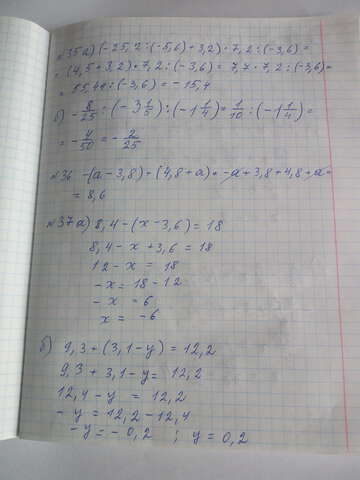 №35 а) (-25,2 : (-5,6) + 3,2) · 7,2 : (-3,6) =
= (4,5 + 3,2) · 7,2 : (-3,6) = 7,7 · 7,2 : (-3,6) =
= 55,44 : (-3,6) = -15,4
б) - 8/25 : (-3 1/5) : (-1 1/4) = 1/10 : (-1 1/4) =
= - 4/50 = - 2/25
№36 -(a - 3,8) + (4,8 + a) = -a + 3,8 + 4,8 + a =
= 8,6
№37 а) 8,4 - (x - 3,6) = 18
8,4 - x + 3,6 = 18
12 - x = 18
-x = 18 - 12
-x = 6
x = -6
б) 9,3 + (3,1 - y) = 12,2
9,3 + 3,1 - y = 12,2
12,4 - y = 12,2
- y = 12,2 - 12,4
-y = -0,2 ; y = 0,2